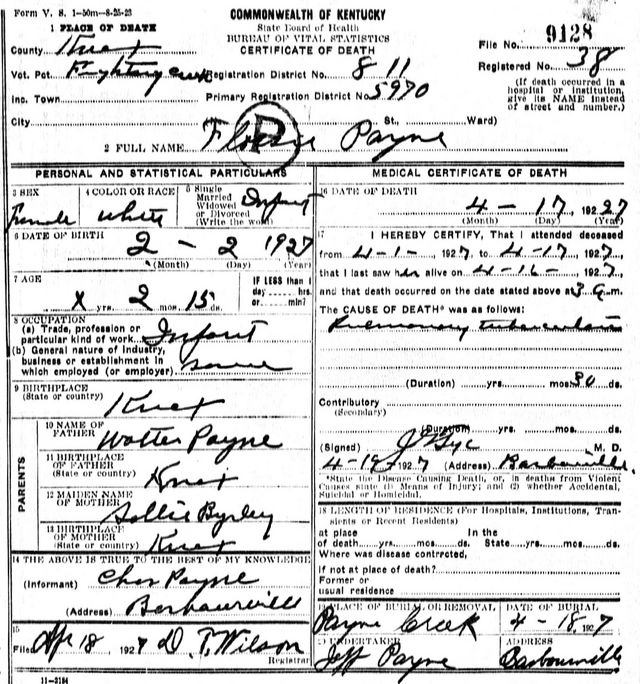 Form V. S. 1-50m-8-25-23
COMMONWEALTH OF KENTUCKY
State Board of Health
BUREAU OF VITAL STATISTICS
CERTIFICATE OF DEATH
1 PLACE OF DEATH
County Knox
File No. 9128
Vot. Pct. Registration District No. 811
Registered No. 38
Inc. Town Primary Registration District No. 5970
(If death occurred in a hospital or institution, give its NAME instead of street and number.)
City St., Ward)
2 FULL NAME Payne
PERSONAL AND STATISTICAL PARTICULARS
3 SEX Female
4 COLOR OR RACE White
5 Single Married Widowed or Divorced (Write the word) Infant
6 DATE OF BIRTH 2 - 2 1927
(Month) (Day) (Year)
7 AGE x yrs. 2 mos. 15 ds.
IF LESS than 1 day hrs. or min?
8 OCCUPATION
(a) Trade, profession or particular kind of work Infant
(b) General nature of industry, business or establishment in which employed (or employer)
9 BIRTHPLACE
(State or country) Knox
PARENTS
10 NAME OF FATHER Walter Payne
11 BIRTHPLACE OF FATHER
(State or country) Knox
12 MAIDEN NAME OF MOTHER Sollie Byrley
13 BIRTHPLACE OF MOTHER
(State or country) Knox
14 THE ABOVE IS TRUE TO THE BEST OF MY KNOWLEDGE
(Informant) Chas Payne
(Address) Barbourville
15
Filed Apr 18 1927 D. T. Wilson
Registrar
11-3184
MEDICAL CERTIFICATE OF DEATH
16 DATE OF DEATH 4 - 17, 1927
(Month) (Day) (Year)
17 I HEREBY CERTIFY, That I attended deceased
from 4-1- 1927, to 4-17, 1927,
that I last saw her alive on 4-16- 1927,
and that death occurred on the date stated above at 3 m.
The CAUSE OF DEATH* was as follows:
Pulmonary tuberculosis
(Duration) yrs. mos. 30 ds.
Contributory
(Secondary)
(Duration) yrs. mos. ds.
(Signed) M. D.
4-19 1927 (Address) Barbourville
*State the Disease Causing Death, or, in deaths from Violent
Causes state (1) Means of Injury; and (2) whether Accidental,
Suicidal or Homicidal.
18 LENGTH OF RESIDENCE (For Hospitals, Institutions, Transients or Recent Residents)
at place of death yrs. mos. ds. In the State yrs. mos. ds.
Where was disease contrcted,
If not at place of death?
Former or
usual residence
19 PLACE OF BURIAL OR REMOVAL Payne Creek
DATE OF BURIAL 4-18, 1927
20 UNDERTAKER Jeff Payne
ADDRESS Barbourville